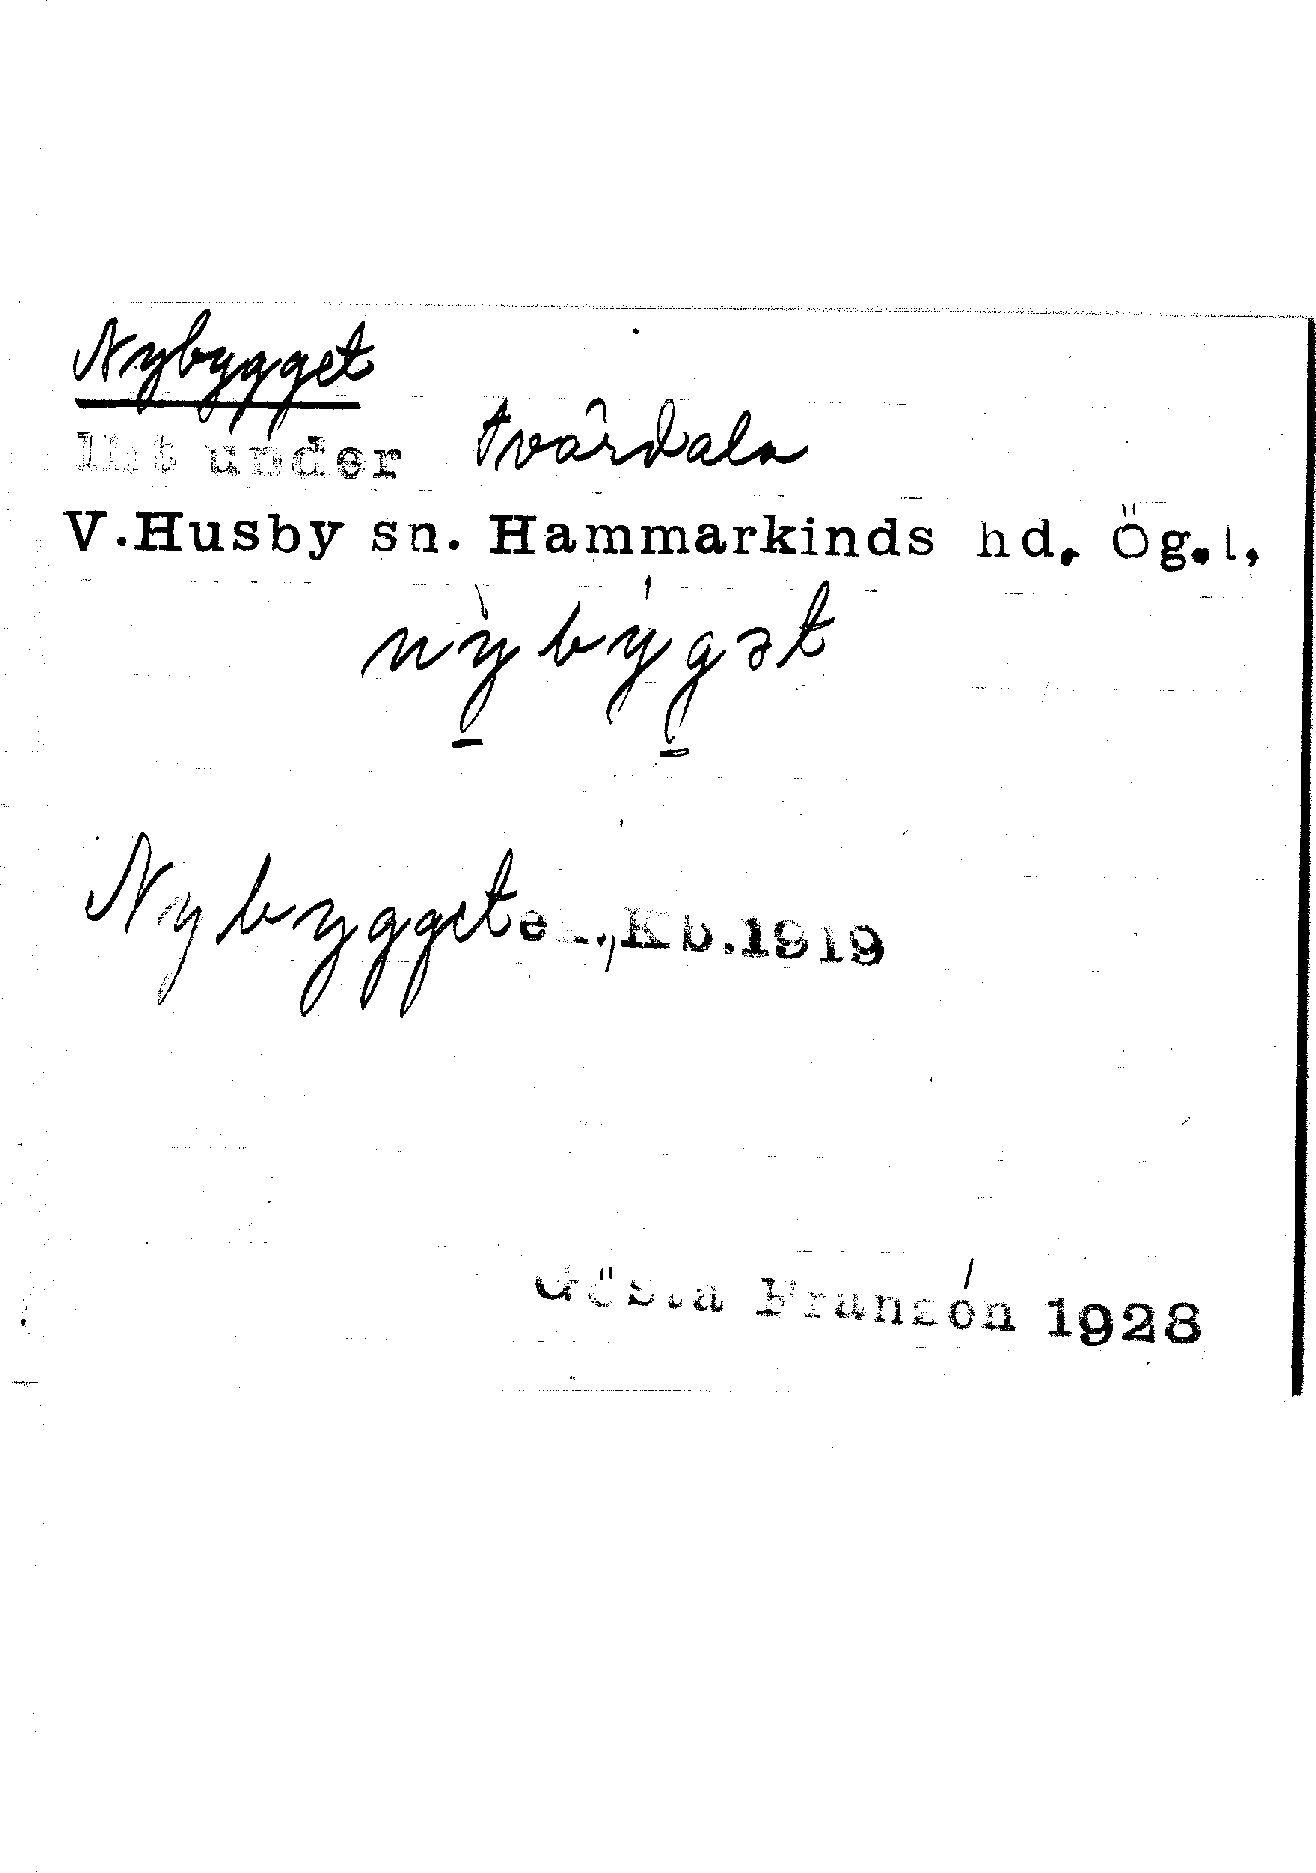 Nybygget
lht under Tvärdala
V.Husby sn. Hammarkinds hd. Ög.l.
nỳbýgət
Nybygget ek., Kb.1919
Gösta Franzén 1928